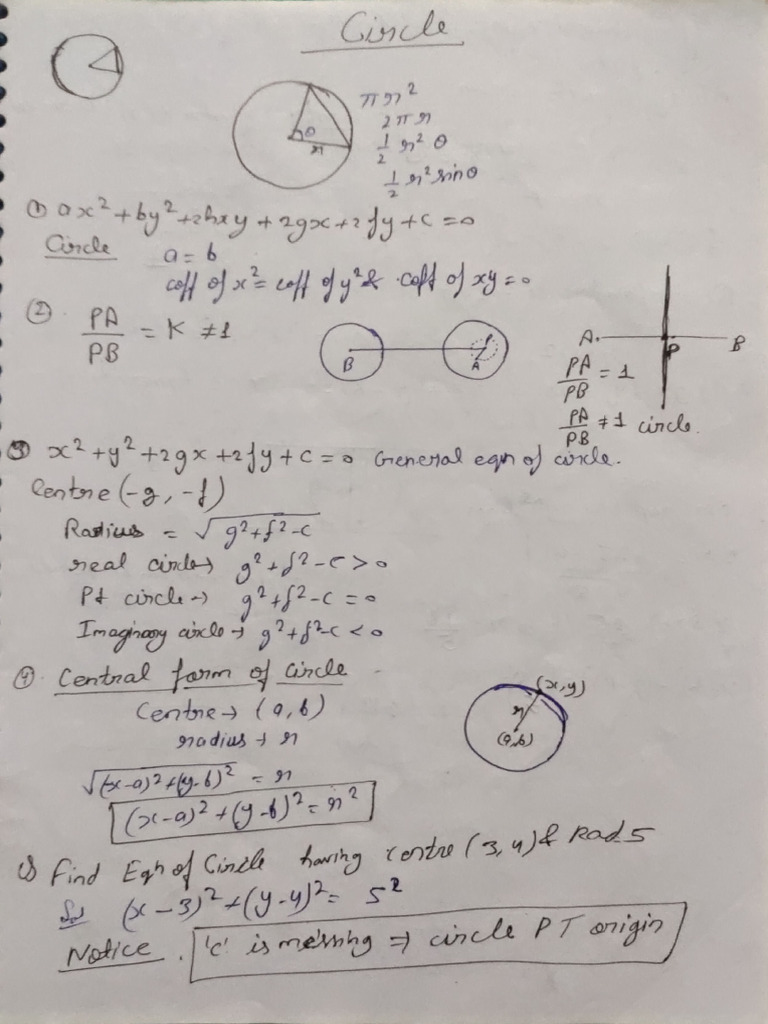 Circle
θ
r
πr²
2πr
1/2 r²θ
1/2 r² sinθ
① ax²+by²+2hxy+2gx+2fy+c=0
Circle a=b
coff of x²= coff of y² & coff of xy=0
② PA/PB = K ≠1
B A
A. P B
PA/PB = 1
PA/PB ≠1 circle.
③ x²+y²+2gx+2fy+c=0 General eqn of circle.
Centre (-g, -f)
Radius = √g²+f²-c
real circle→ g²+f²-c>0
Pt circle→ g²+f²-c=0
Imaginary circle→ g²+f²-c<0
④ Central form of Circle
(x,y)
r
(a,b)
Centre→ (a,b)
radius→ r
√(x-a)²+(y-b)² = r
(x-a)²+(y-b)²=r²
Find Eqn of Circle having centre (3,4) & Rad 5
Sol (x-3)²+(y-4)²= 5²
Notice. 'c' is missing ⇒ circle PT origin